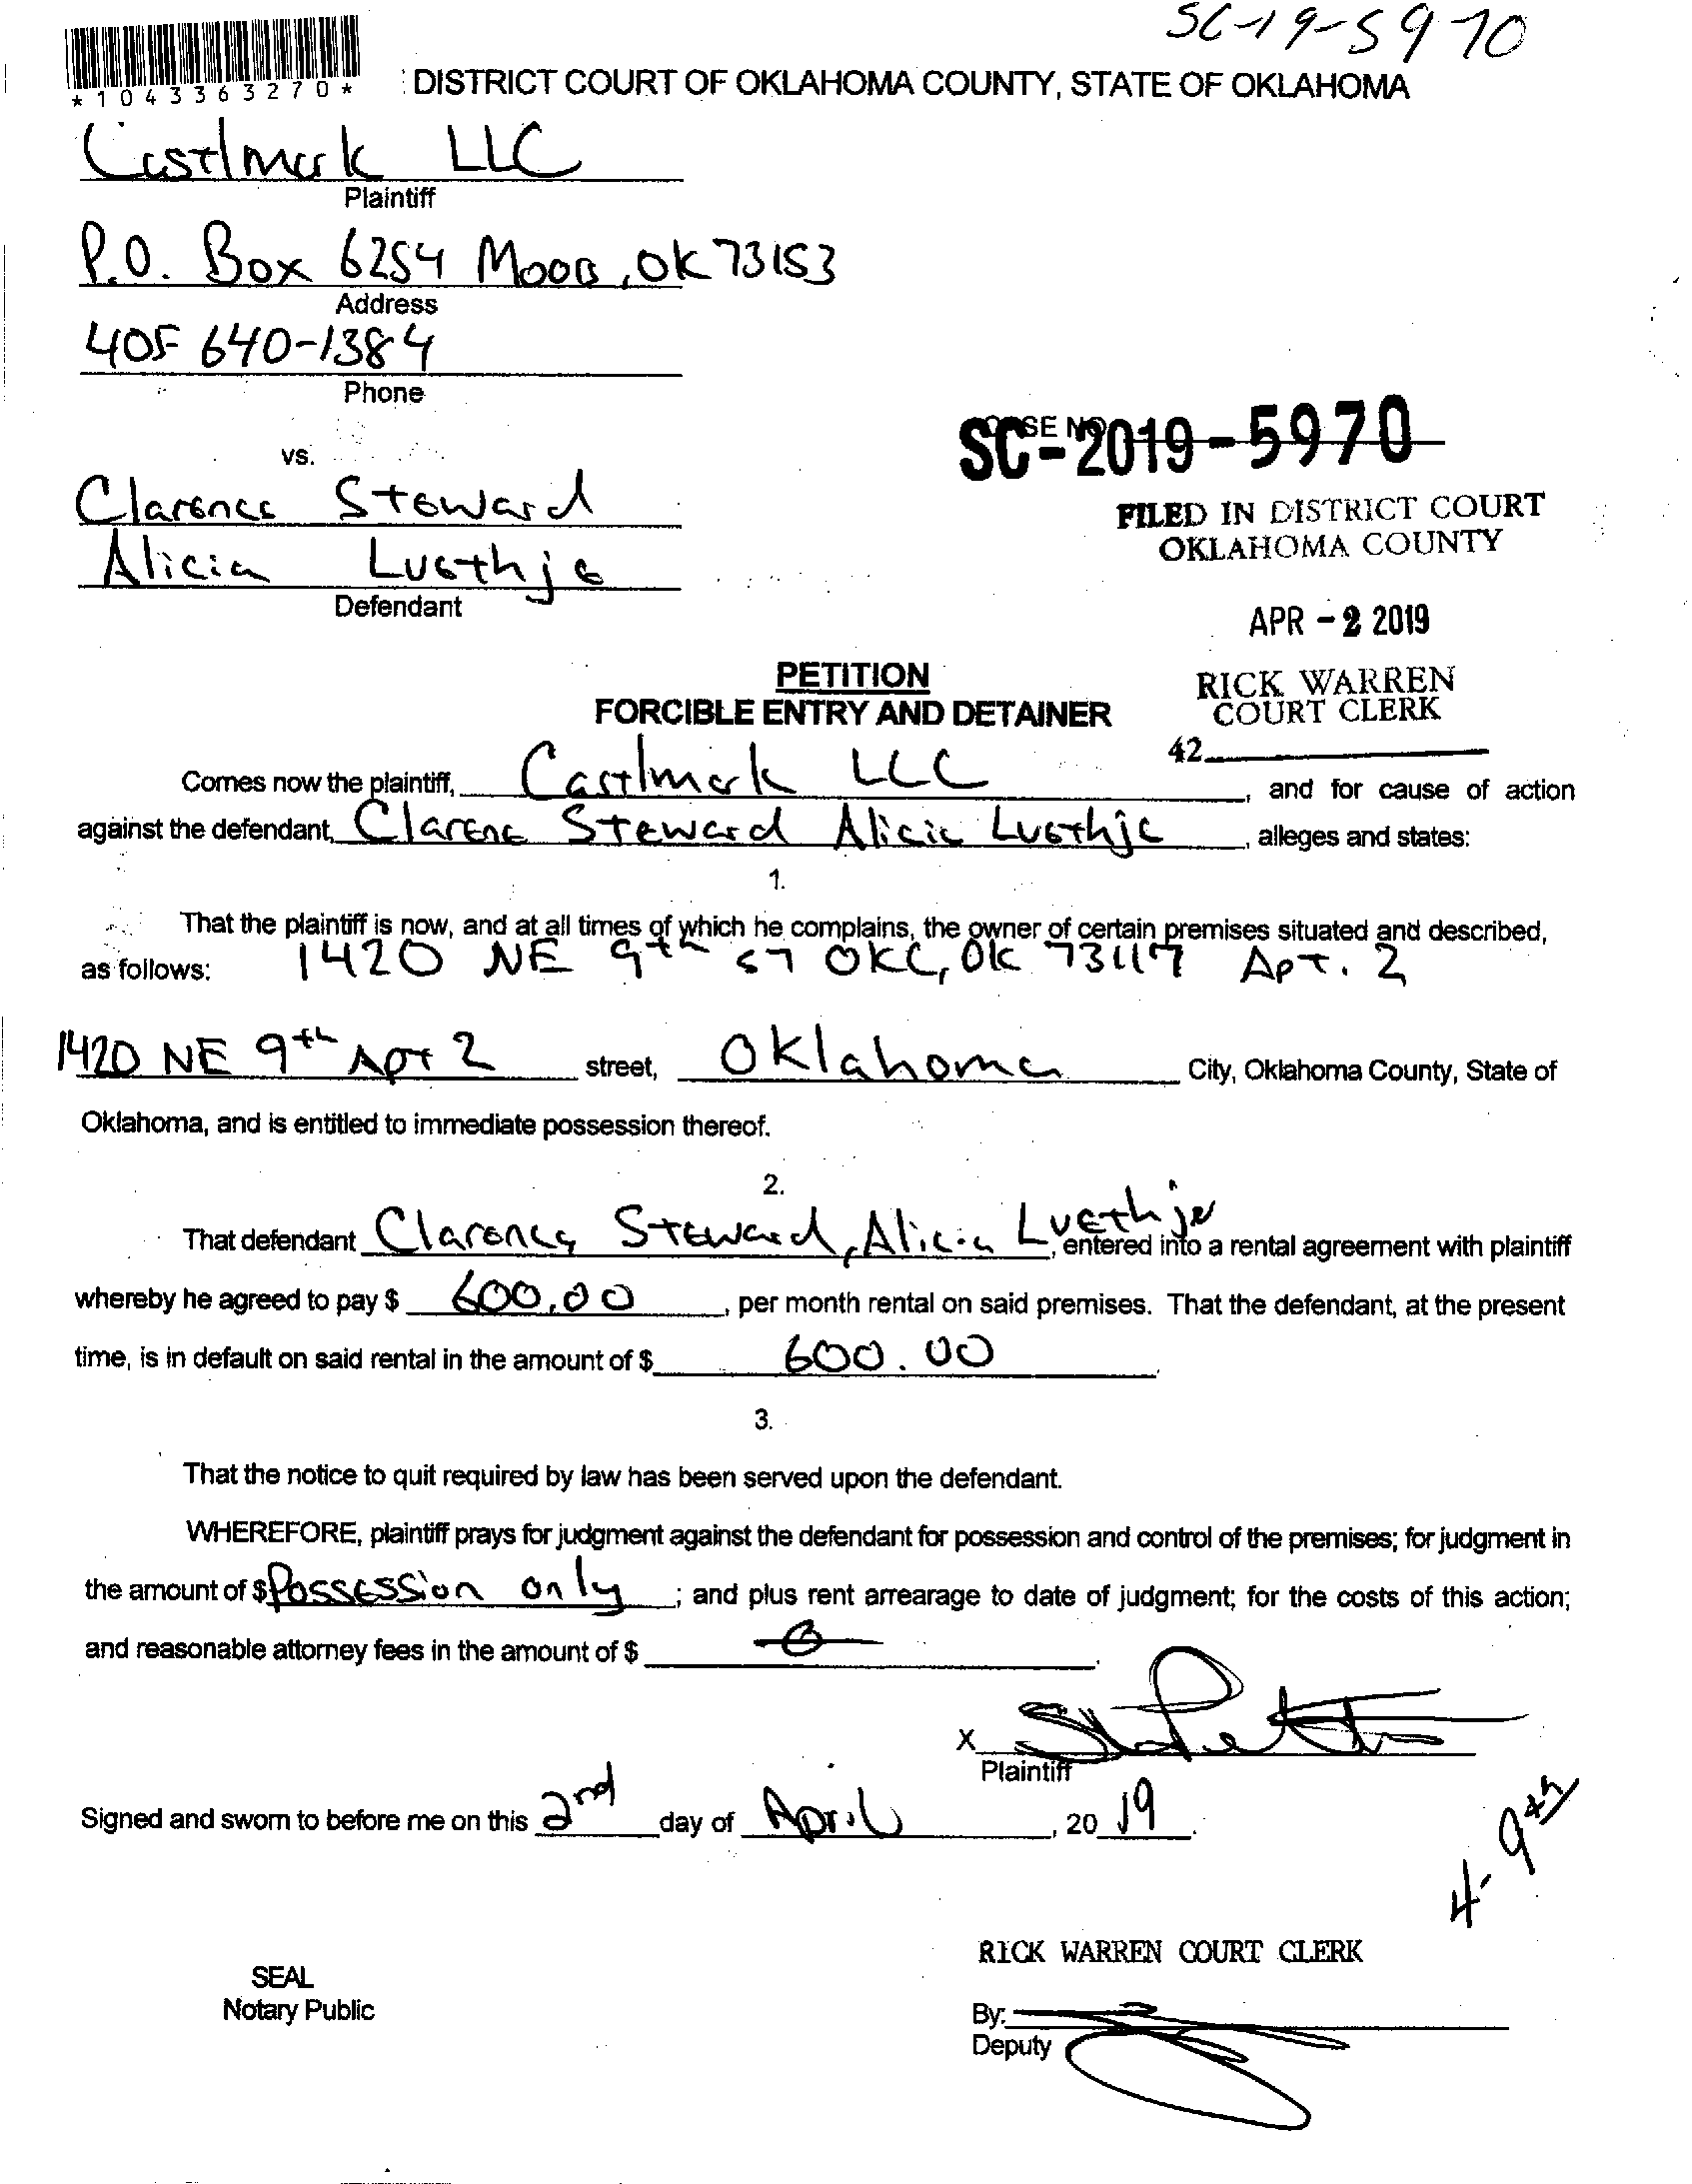 SC-19-5970
*1043363270*
DISTRICT COURT OF OKLAHOMA COUNTY, STATE OF OKLAHOMA
Castlmark LLC
Plaintiff
P.O. Box 6254 Moore, OK 73153
Address
405 640-1384
Phone
vs.
CASE NO.
SC-2019-5970
Clarence Steward
FILED IN DISTRICT COURT
OKLAHOMA COUNTY
Alicia Luethje
Defendant
APR -2 2019
PETITION
FORCIBLE ENTRY AND DETAINER
RICK WARREN
COURT CLERK
42
Comes now the plaintiff, Castlmark LLC, and for cause of action
against the defendant, Clarence Steward Alicia Luethje, alleges and states:
1.
That the plaintiff is now, and at all times of which he complains, the owner of certain premises situated and described,
as follows: 1420 NE 9th ST OKC, OK 73117 Apt. 2
1420 NE 9th Apt 2 street, Oklahoma City, Oklahoma County, State of
Oklahoma, and is entitled to immediate possession thereof.
2.
That defendant Clarence Steward, Alicia Luethje, entered into a rental agreement with plaintiff
whereby he agreed to pay $ 600.00, per month rental on said premises. That the defendant, at the present
time, is in default on said rental in the amount of $ 600.00.
3.
That the notice to quit required by law has been served upon the defendant.
WHEREFORE, plaintiff prays for judgment against the defendant for possession and control of the premises; for judgment in
the amount of $ Possession only; and plus rent arrearage to date of judgment; for the costs of this action;
and reasonable attorney fees in the amount of $ 0.
X
Plaintiff
Signed and sworn to before me on this 2nd day of April, 2019.
4-9th
RICK WARREN COURT CLERK
SEAL
Notary Public
By:
Deputy